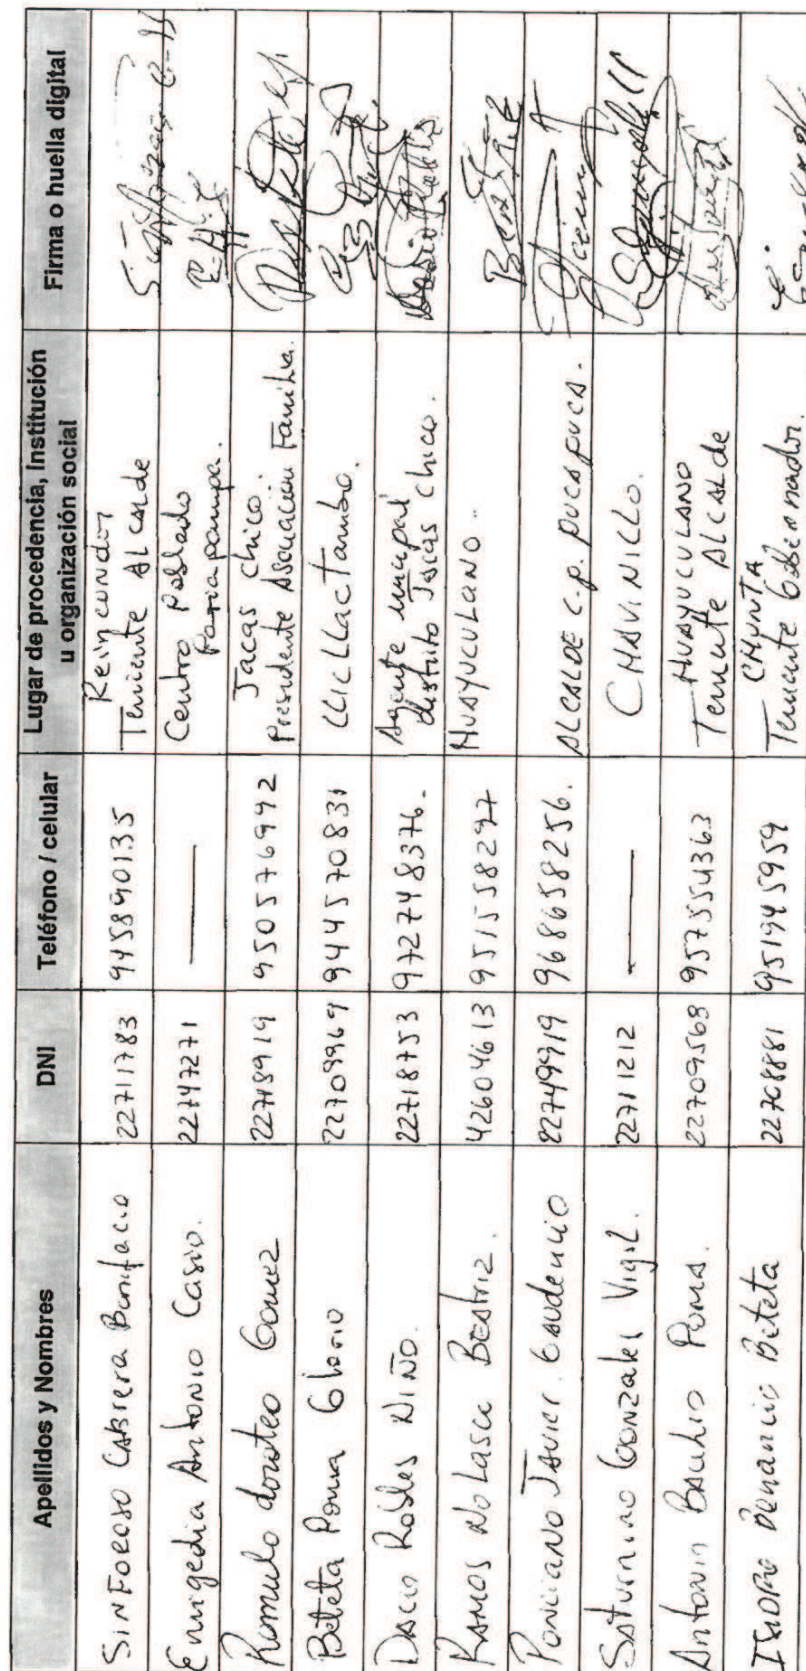 Apellidos y Nombres DNI Teléfono / celular Lugar de procedencia, institución u organización social Firma o huella digital
SINFOROSO CABRERA Bonifacio 22711783 945890135 Reiycundor Teniente Alcalde
Emigedia Antonio Casio. 22747271 — Centro Poblado Pariapampa.
Romulo doroteo Gomez 22718919 950576992 Jacas Chico. Presidente Asociación Familia.
Beteta Poma Glorio 22709969 944570831 LLicLLactambo.
Dacio Robles NIÑO. 22718753 972748376. Agente distrito Jacas Chico.
RAMOS NOLASCO BEATRIZ. 42604613 951558297 HUAYUCULANO.
PONCIANO JAVIER. GAUDENCIO 22749919 968658256. ALCALDE C.P. PUCA PUCA.
SATURNINO GONZALES Vigil. 22711212 — CHAVINILLO.
Antonio Poma. 22709568 957554363 HUAYUCULANO Teniente ALCALDE
ISIDRO Benancio Beteta 22708881 951945959 CHUNTA Teniente Gobernador.